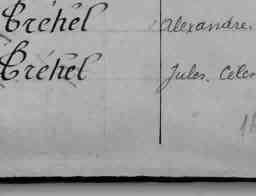 Bréhel Alexandre.
Bréhel Jules. Céles